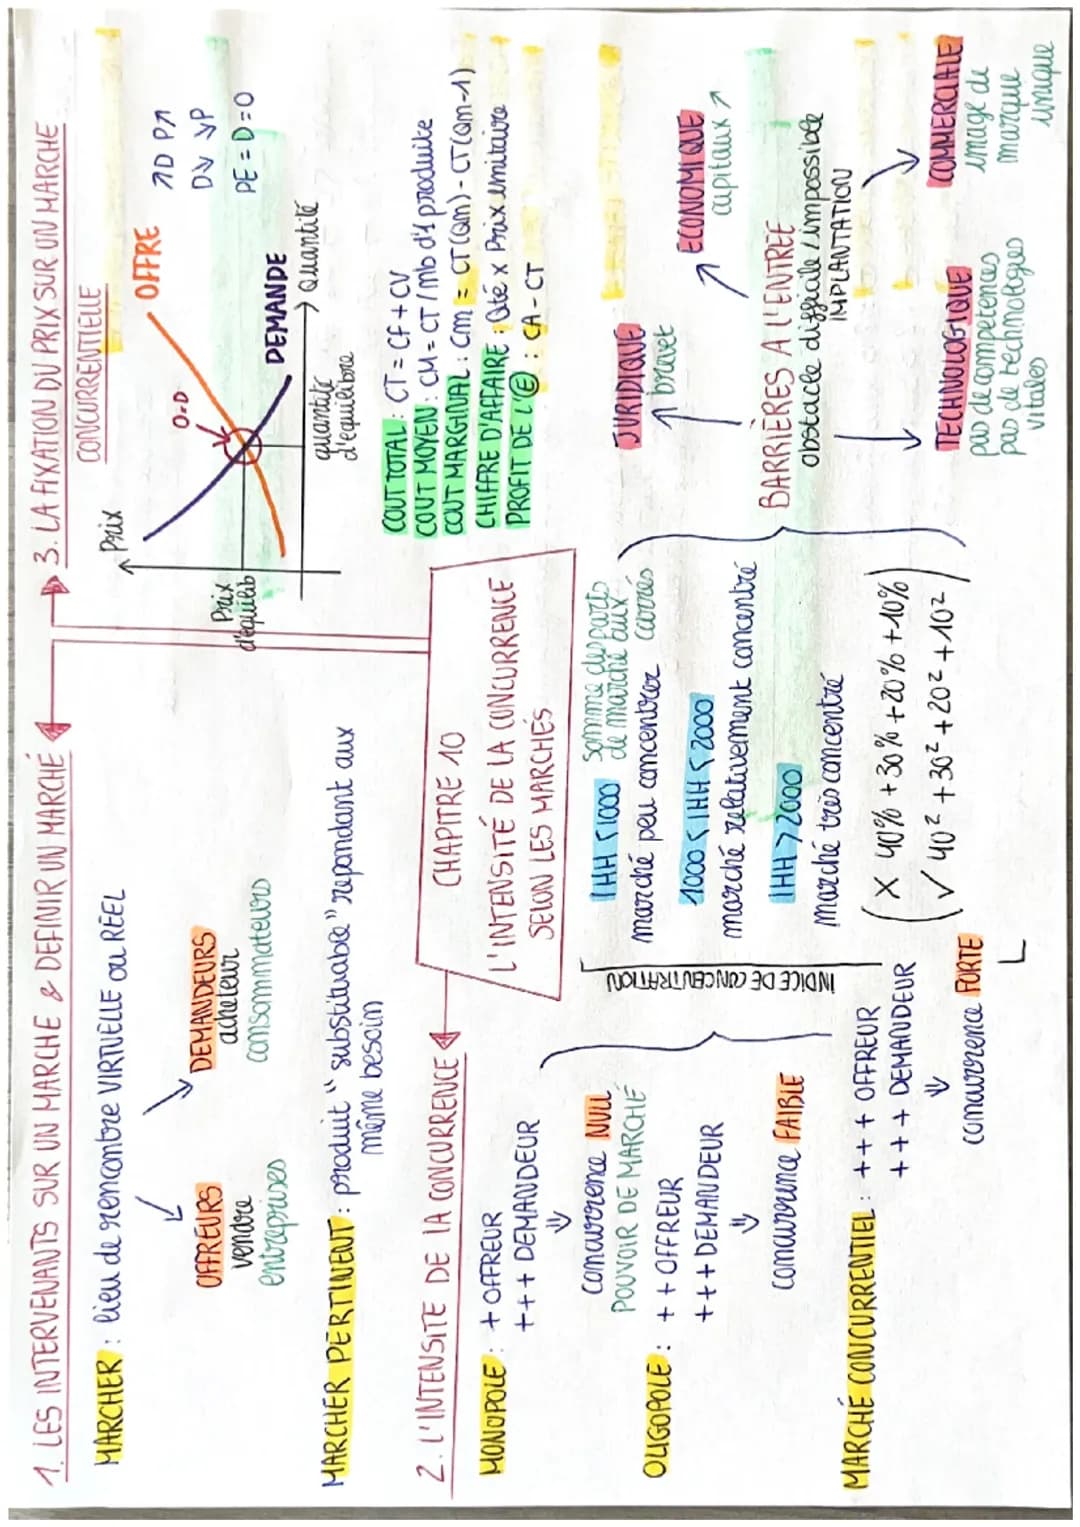 1. LES INTERVENANTS SUR UN MARCHE & DEFINIR UN MARCHÉ
MARCHER : lieu de rencontre VIRTUELLE ou RÉEL
OFFREURS
vendre
entreprises
DEMANDEURS
acheteur
consommateurs
MARCHER PERTINENT : produit "substituable" repondant aux
même besoin
2. L'INTENSITE DE LA CONCURRENCE
MONOPOLE : + OFFREUR
+++ DEMANDEUR
concurrence NULL
POUVOIR DE MARCHÉ
OLIGOPOLE : ++ OFFREUR
+++ DEMANDEUR
concurrence FAIBLE
MARCHÉ CONCURRENTIEL : +++ OFFREUR
+++ DEMANDEUR
concurrence FORTE
CHAPITRE 10
L'INTENSITÉ DE LA CONCURRENCE
SELON LES MARCHÉS
INDICE DE CONCENTRATION
IHH < 1000
somme des parts
de marché aux
carrés
marché peu concentrer
1000 < IHH < 2000
marché relativement concentré
IHH > 2000
marché très concentré
(X 40% + 30% + 20% + 10%)
(√ 40² + 30² + 20² + 10²)
3. LA FIXATION DU PRIX SUR UN MARCHE
CONCURRENTIELLE
Prix
OFFRE
O=D
DEMANDE
Prix
d'équilib
quantité
d'équilibre
Quantité
↗D P↗
D↘ ↘P
PE = D = O
COUT TOTAL : CT = CF + CV
COUT MOYEN : CM = CT / nb d'1 produite
COUT MARGINAL : Cm = CT(Qn) - CT(Qn-1)
CHIFFRE D'AFFAIRE : Qté x Prix unitaire
PROFIT DE L'(E) : CA - CT
JURIDIQUE
brevet
ECONOMIQUE
capitaux ↗
BARRIÈRES A L'ENTRÉE
obstacle difficile / impossible
IMPLANTATION
TECHNOLOGIQUE
pas de compétences
pas de technologies
vitales
COMMERCIALE
image de
marque
unique